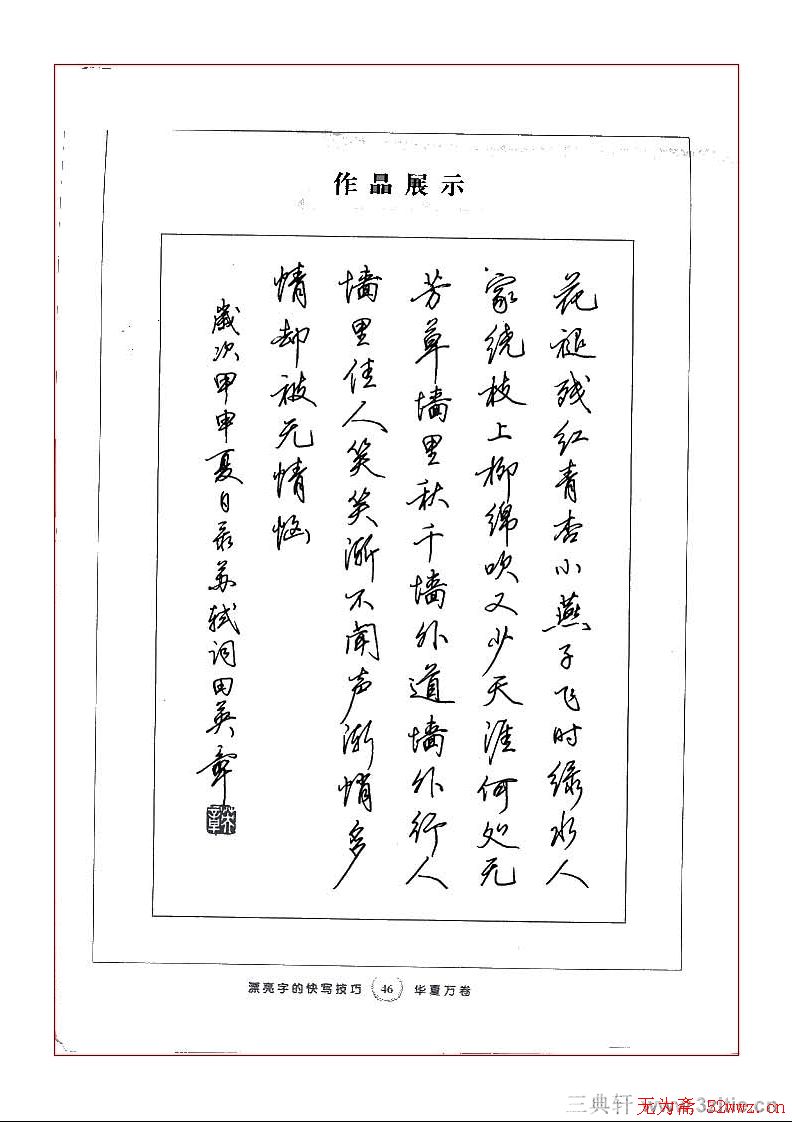 作品展示
花褪残红青杏小燕子飞时绿水人
家绕枝上柳绵吹又少天涯何处无
芳草墙里秋千墙外道墙外行人
墙里佳人笑笑渐不闻声渐悄多
情却被无情恼
歲次甲申夏日录苏轼词田英章
漂亮字的快写技巧 46 华夏万卷
无为斋 52wwz.cn